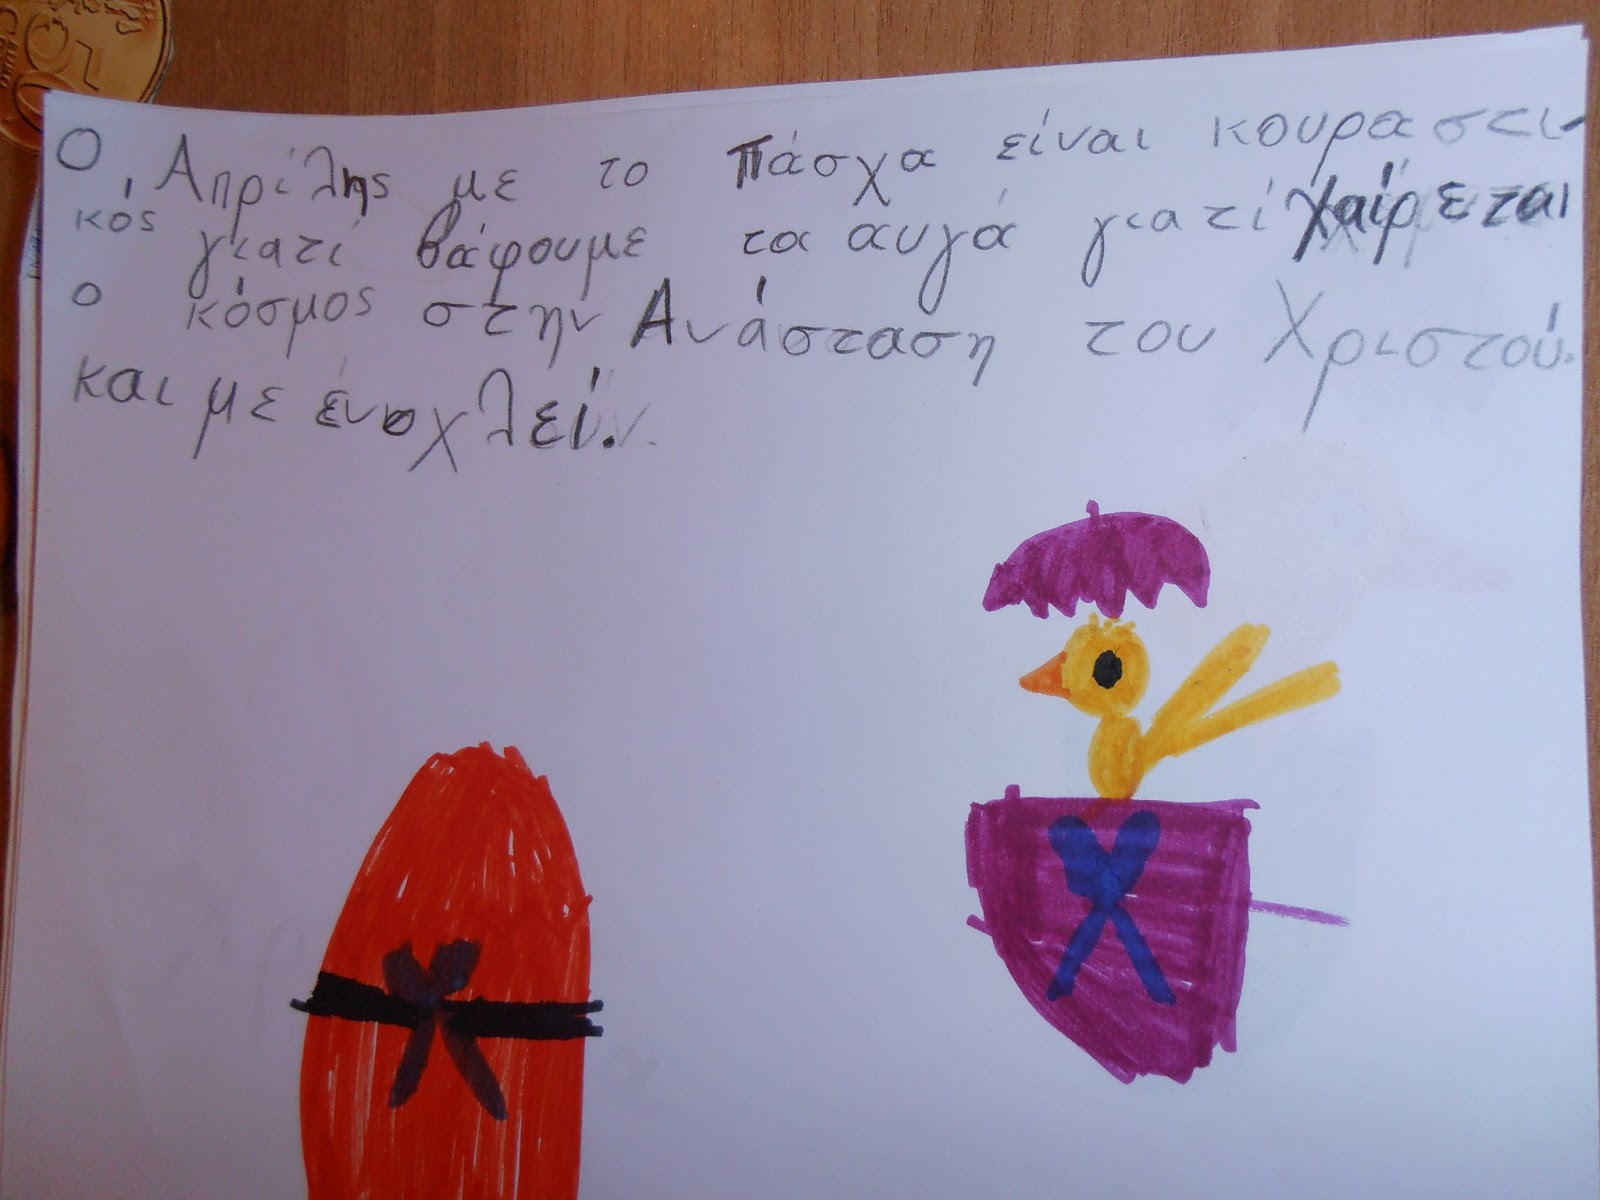 Ο Απρίλης με το Πάσχα είναι κουραστι-
κός γιατί βάφουμε τα αυγά γιατί χαίρεται
ο κόσμος στην Ανάσταση του Χριστού.
και με ένοχλεί.